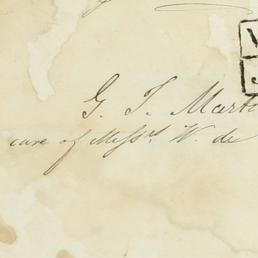 G. T. Marte
care of Messrs. W. de